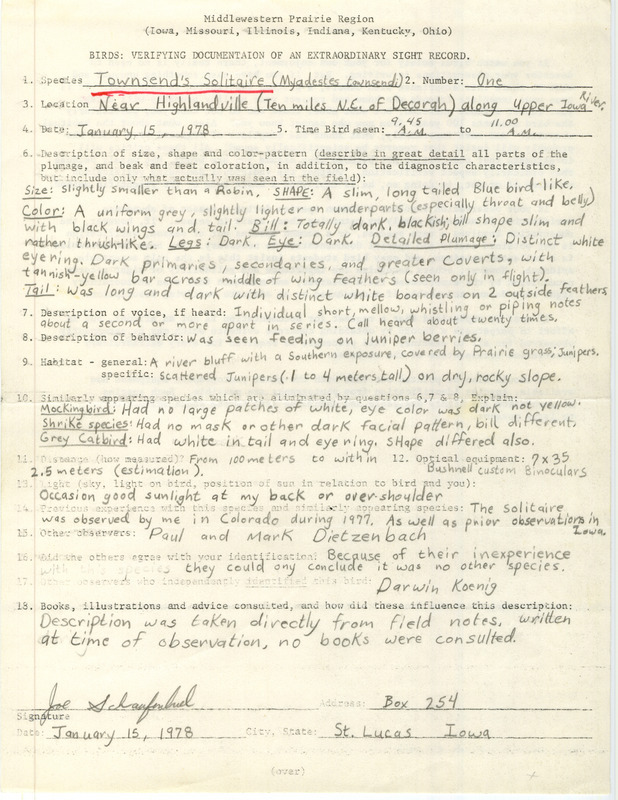 Middlewestern Prairie Region
(Iowa, Missouri, Illinois, Indiana, Kentucky, Ohio)
BIRDS: VERIFYING DOCUMENTAION OF AN EXTRAORDINARY SIGHT RECORD.
1. Species Townsend's Solitaire (Myadestes townsendi) 2. Number: One
3. Location Near Highlandville (Ten miles N.E. of Decorah) along Upper Iowa River.
4. Date: January 15, 1978 5. Time Bird seen: 9.45 A.M. to 11.00 A.M.
6. Description of size, shape and color-pattern (describe in great detail all parts of the
plumage, and beak and feet coloration, in addition, to the diagnostic characteristics,
but include only what actually was seen in the field):
Size: Slightly smaller than a Robin. SHAPE: A slim, long tailed Blue bird-like,
Color: A uniform grey, slightly lighter on underparts (especially throat and belly)
with black wings and tail. Bill: Totally dark, blackish; bill shape slim and
rather thrush-like. Legs: Dark. Eye: Dark. Detailed Plumage: Distinct white
eyering. Dark primaries, secondaries, and greater coverts, with
tannish-yellow bar across middle of wing feathers (seen only in flight).
Tail: was long and dark with distinct white boarders on 2 outside feathers
7. Description of voice, if heard: Individual short, mellow, whistling or piping notes
about a second or more apart in series. Call heard about twenty times.
8. Description of behavior: Was seen feeding on juniper berries.
9. Habitat - general: A river bluff with a Southern exposure, covered by Prairie grass; Junipers.
specific: Scattered Junipers (.1 to 4 meters tall) on dry, rocky slope.
10. Similarly appearing species which are eliminated by questions 6,7 & 8, Explain:
Mockingbird: Had no large patches of white, eye color was dark not yellow.
Shrike species: Had no mask or other dark facial pattern, bill different.
Grey Catbird: Had white in tail and eyering. Shape differed also.
11. Distance (how measured)? From 100 meters to within 12. Optical equipment: 7x35
2.5 meters (estimation). Bushnell custom Binoculars
13. Light (sky, light on bird, position of sun in relation to bird and you):
Occasion good sunlight at my back or over-shoulder
14. Previous experience with this species and similarly appearing species: The Solitaire
was observed by me in Colorado during 1977. As well as prior observations in
Iowa.
15. Other observers: Paul and Mark Dietzenbach
16. Did the others agree with your identification? Because of their inexperience
with this species they could ony conclude it was no other species.
17. Other observers who independently identified this bird:
Darwin Koenig
18. Books, illustrations and advice consulted, and how did these influence this description:
Description was taken directly from field notes, written
at time of observation, no books were consulted.
Joe Schaufenbuel Address: Box 254
Signature
Date: January 15, 1978 City, State: St. Lucas Iowa
(over)